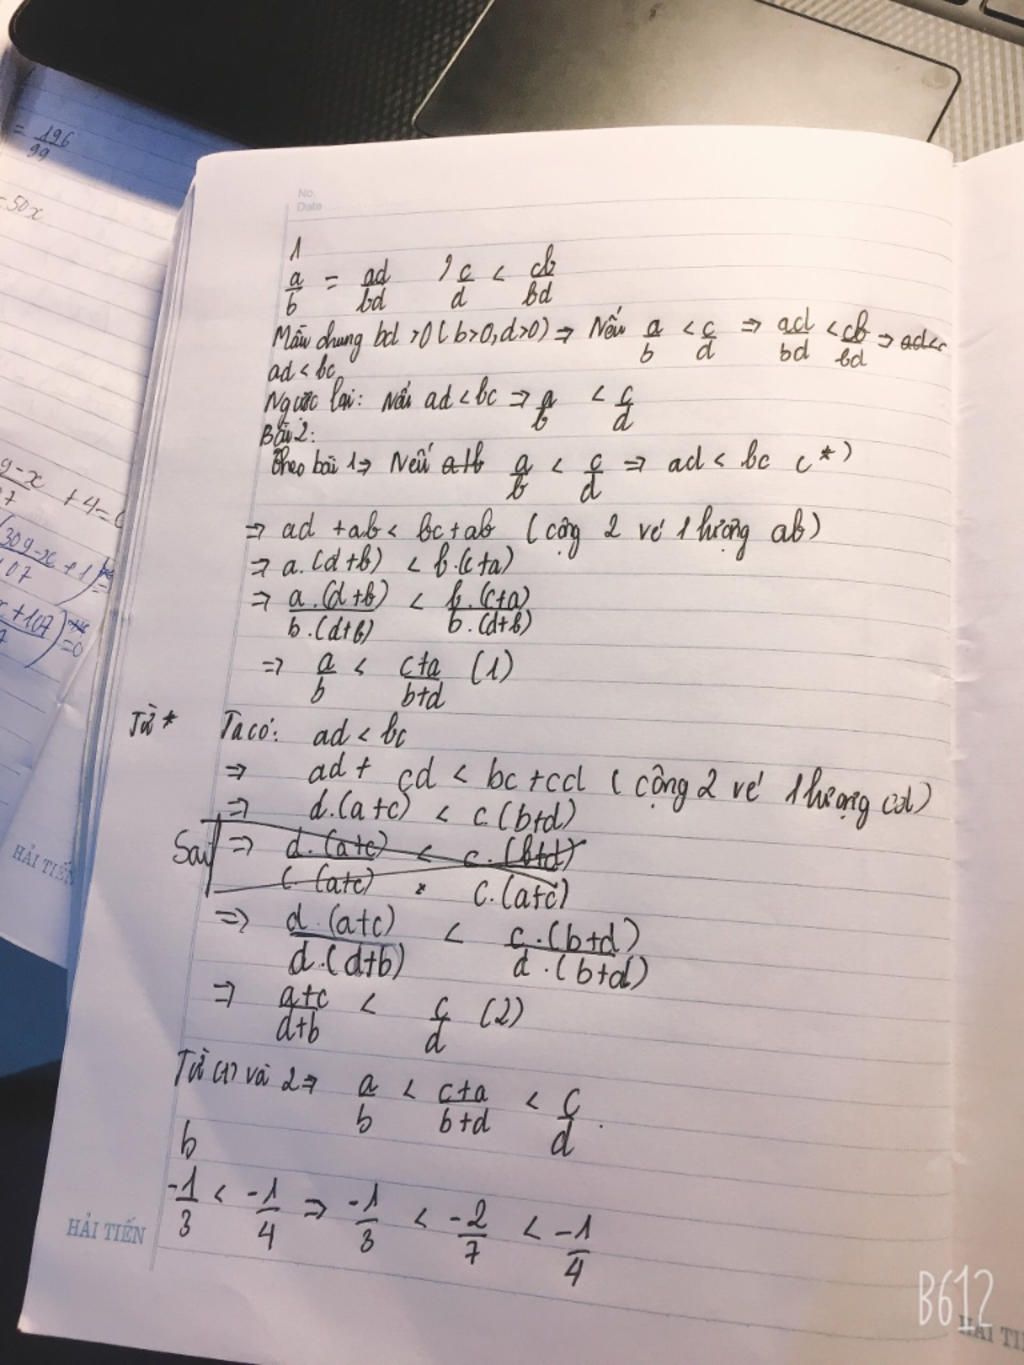 = 196/99
= 50x
No.
Date
1
a/b = ad/bd ; c/d < cb/bd
Mẫu chung bd > 0 (b > 0, d > 0) ⇒ Nếu a/b < c/d ⇒ ad/bd < cb/bd ⇒ ~~ad<c~~
ad < bc
Ngược lại: Nếu ad < bc ⇒ a/b < c/d
Bài 2:
Theo bài 1 ⇒ Nếu ~~a+b~~ a/b < c/d ⇒ ad < bc (*)
⇒ ad + ab < bc + ab (cộng 2 vế 1 lượng ab)
⇒ a.(d+b) < b.(c+a)
⇒ a.(d+b)/b.(d+b) < b.(c+a)/b.(d+b)
⇒ a/b < c+a/b+d (1)
Từ * Ta có: ad < bc
⇒ ad + cd < bc + cd (cộng 2 vế 1 lượng cd)
⇒ d.(a+c) < c.(b+d)
Sai ~~⇒ d.(a+c)/c.(a+c) < c.(b+d)/c.(a+c)~~
⇒ d.(a+c)/d.(d+b) < c.(b+d)/d.(b+d)
⇒ a+c/d+b < c/d (2)
Từ (1) và 2 ⇒ a/b < c+a/b+d < c/d.
b
-1/3 < -1/4 ⇒ -1/3 < -2/7 < -1/4
HẢI TIẾN
HẢI TIẾN
B612